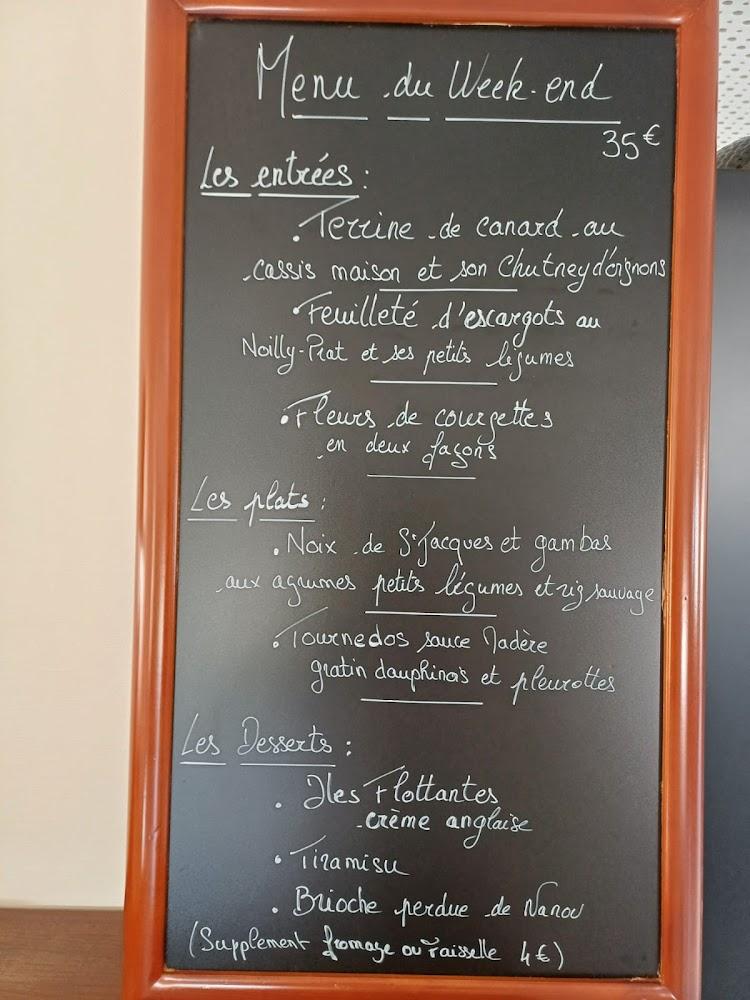 Menu du Week-end
35€
Les entrées :
. Terrine de canard au
cassis maison et son Chutney d'oignons
. Feuilleté d'escargots au
Noilly-Prat et ses petits légumes
. Fleurs de courgettes
en deux façons
Les plats :
. Noix de St Jacques et gambas
aux agrumes petits légumes et riz sauvage
. Tournedos sauce Madère
gratin dauphinois et pleurottes
Les Desserts :
. Iles Flottantes
crème anglaise
. Tiramisu
. Brioche perdue de Nanou
(Supplement fromage ou Faisselle 4€)